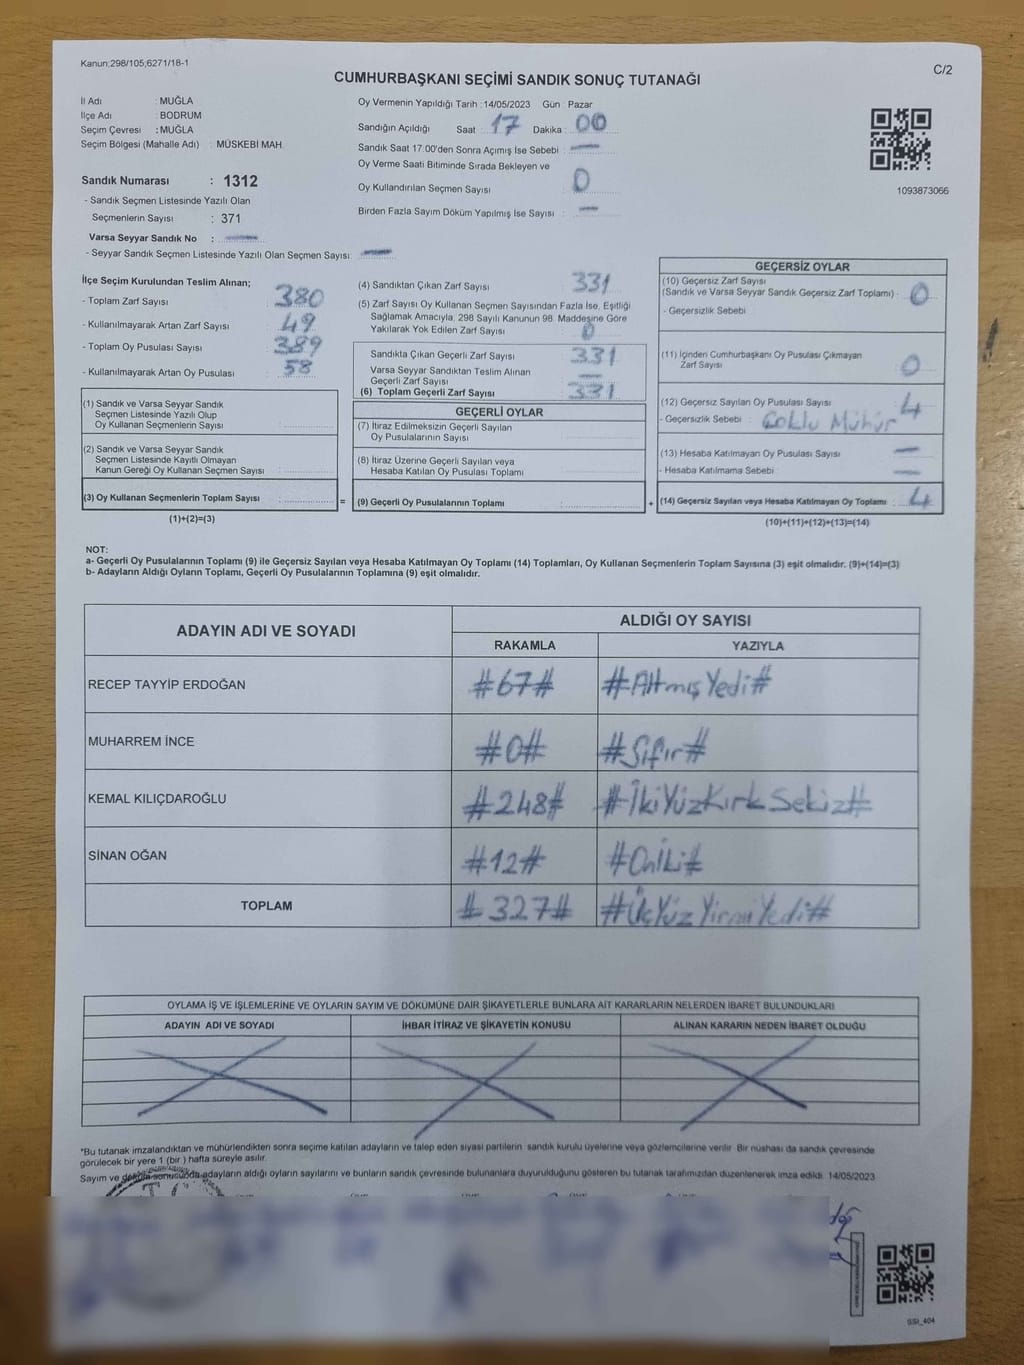 Kanun;298/105;6271/18-1
C/2
CUMHURBAŞKANI SEÇİMİ SANDIK SONUÇ TUTANAĞI
İl Adı : MUĞLA
İlçe Adı : BODRUM
Seçim Çevresi : MUĞLA
Seçim Bölgesi (Mahalle Adı) : MÜSKEBİ MAH.
Sandık Numarası : 1312
- Sandık Seçmen Listesinde Yazılı Olan
Seçmenlerin Sayısı : 371
Varsa Seyyar Sandık No : —
- Seyyar Sandık Seçmen Listesinde Yazılı Olan Seçmen Sayısı: —
Oy Vermenin Yapıldığı Tarih :14/05/2023 Gün : Pazar
Sandığın Açıldığı Saat : 17 Dakika : 00
Sandık Saat 17:00'den Sonra Açımış İse Sebebi : —
Oy Verme Saati Bitiminde Sırada Bekleyen ve
Oy Kullandırılan Seçmen Sayısı : 0
Birden Fazla Sayım Döküm Yapılmış İse Sayısı : —
1093873066
İlçe Seçim Kurulundan Teslim Alınan;
- Toplam Zarf Sayısı : 380
- Kullanılmayarak Artan Zarf Sayısı : 49
- Toplam Oy Pusulası Sayısı : 389
- Kullanılmayarak Artan Oy Pusulası : 58
(1) Sandık ve Varsa Seyyar Sandık
Seçmen Listesinde Yazılı Olup
Oy Kullanan Seçmenlerin Sayısı :
(2) Sandık ve Varsa Seyyar Sandık
Seçmen Listesinde Kayıtlı Olmayan
Kanun Gereği Oy Kullanan Seçmen Sayısı :
(3) Oy Kullanan Seçmenlerin Toplam Sayısı :
=
(1)+(2)=(3)
(4) Sandıktan Çıkan Zarf Sayısı : 331
(5) Zarf Sayısı Oy Kullanan Seçmen Sayısından Fazla İse, Eşitliği
Sağlamak Amacıyla, 298 Sayılı Kanunun 98. Maddesine Göre
Yakılarak Yok Edilen Zarf Sayısı : 0
Sandıkta Çıkan Geçerli Zarf Sayısı : 331
Varsa Seyyar Sandıktan Teslim Alınan
Geçerli Zarf Sayısı : —
(6) Toplam Geçerli Zarf Sayısı : 331
GEÇERLİ OYLAR
(7) İtiraz Edilmeksizin Geçerli Sayılan
Oy Pusulalarının Sayısı :
(8) İtiraz Üzerine Geçerli Sayılan veya
Hesaba Katılan Oy Pusulası Toplamı :
(9) Geçerli Oy Pusulalarının Toplamı :
+
GEÇERSİZ OYLAR
(10) Geçersiz Zarf Sayısı
(Sandık ve Varsa Seyyar Sandık Geçersiz Zarf Toplamı) : 0
- Geçersizlik Sebebi :
(11) İçinden Cumhurbaşkanı Oy Pusulası Çıkmayan
Zarf Sayısı : 0
(12) Geçersiz Sayılan Oy Pusulası Sayısı : 4
- Geçersizlik Sebebi : Çoklu Mühür
(13) Hesaba Katılmayan Oy Pusulası Sayısı : —
- Hesaba Katılmama Sebebi : —
(14) Geçersiz Sayılan veya Hesaba Katılmayan Oy Toplamı : 4
(10)+(11)+(12)+(13)=(14)
NOT:
a- Geçerli Oy Pusulalarının Toplamı (9) ile Geçersiz Sayılan veya Hesaba Katılmayan Oy Toplamı (14) Toplamları, Oy Kullanan Seçmenlerin Toplam Sayısına (3) eşit olmalıdır. (9)+(14)=(3)
b- Adayların Aldığı Oyların Toplamı, Geçerli Oy Pusulalarının Toplamına (9) eşit olmalıdır.
ADAYIN ADI VE SOYADI
ALDIĞI OY SAYISI
RAKAMLA YAZIYLA
RECEP TAYYİP ERDOĞAN #67# #AltmışYedi#
MUHARREM İNCE #0# #Sıfır#
KEMAL KILIÇDAROĞLU #248# #İkiYüzKırkSekiz#
SİNAN OĞAN #12# #Oniki#
TOPLAM #327# #ÜçYüzYirmiYedi#
OYLAMA İŞ VE İŞLEMLERİNE VE OYLARIN SAYIM VE DÖKÜMÜNE DAİR ŞİKAYETLERLE BUNLARA AİT KARARLARIN NELERDEN İBARET BULUNDUKLARI
ADAYIN ADI VE SOYADI İHBAR İTİRAZ VE ŞİKAYETİN KONUSU ALINAN KARARIN NEDEN İBARET OLDUĞU
*Bu tutanak imzalandıktan ve mühürlendikten sonra seçime katılan adayların ve talep eden siyasi partilerin sandık kurulu üyelerine veya gözlemcilerine verilir. Bir nüshası da sandık çevresinde
görülecek bir yere 1 (bir ) hafta süreyle asılır.
Sayım ve döküm sonucunda adayların aldığı oyların sayılarını ve bunların sandık çevresinde bulunanlara duyurulduğunu gösteren bu tutanak tarafımızdan düzenlenerek imza edildi. 14/05/2023
T.C.
SSI_404